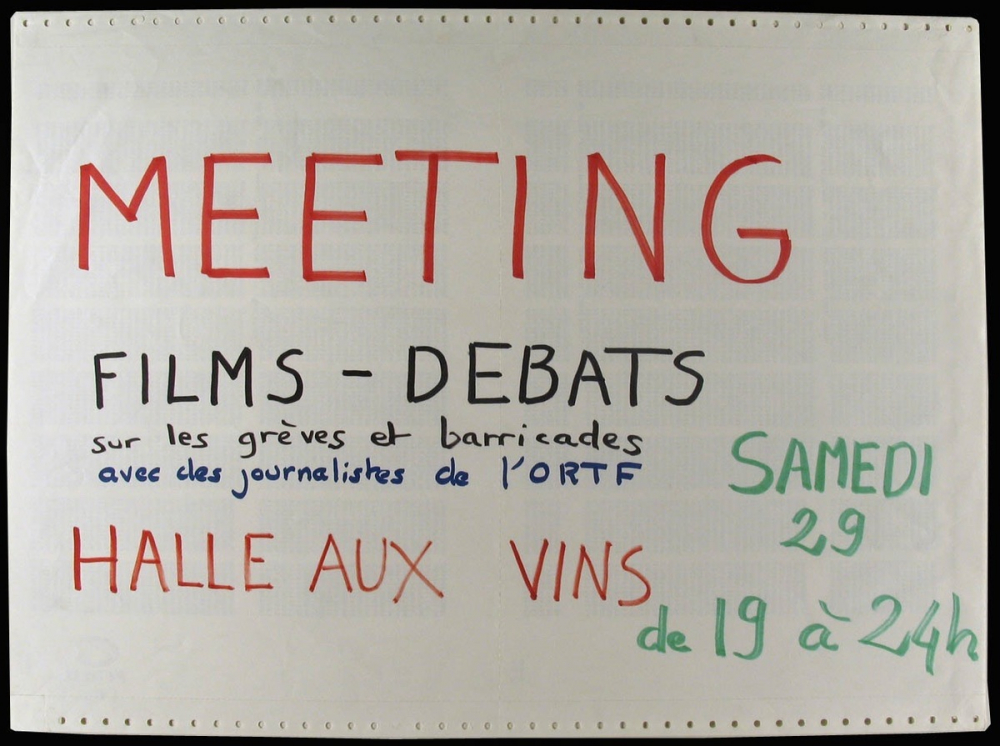 MEETING
FILMS - DEBATS
sur les grèves et barricades
avec des journalistes de l'ORTF
HALLE AUX VINS
SAMEDI
29
de 19 à 24h